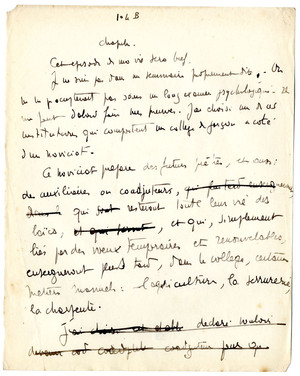 104 B
chapitre.
Cet épisode de ma vie sera bref.
Je ne suis pas dans un séminaire proprement dit. On
ne m'y accepterait pas sans un long examen psychologique. Il
me faut d'abord faire mes preuves. J'ai choisi un de ces
institutions qui comportent un collège de garçons à côté
d'un noviciat.
Ce noviciat prépare des futurs prêtres, et aussi
des auxiliaires ou coadjuteurs,
qui resteront toute leur vie des
laïcs, et qui, simplement
liés par des vœux temporaires et renouvelables,
enseigneront plus tard, dans le collège, certains
métiers manuels : l'agriculture, la serrurerie,
la charpente.
J'ai déclaré vouloir